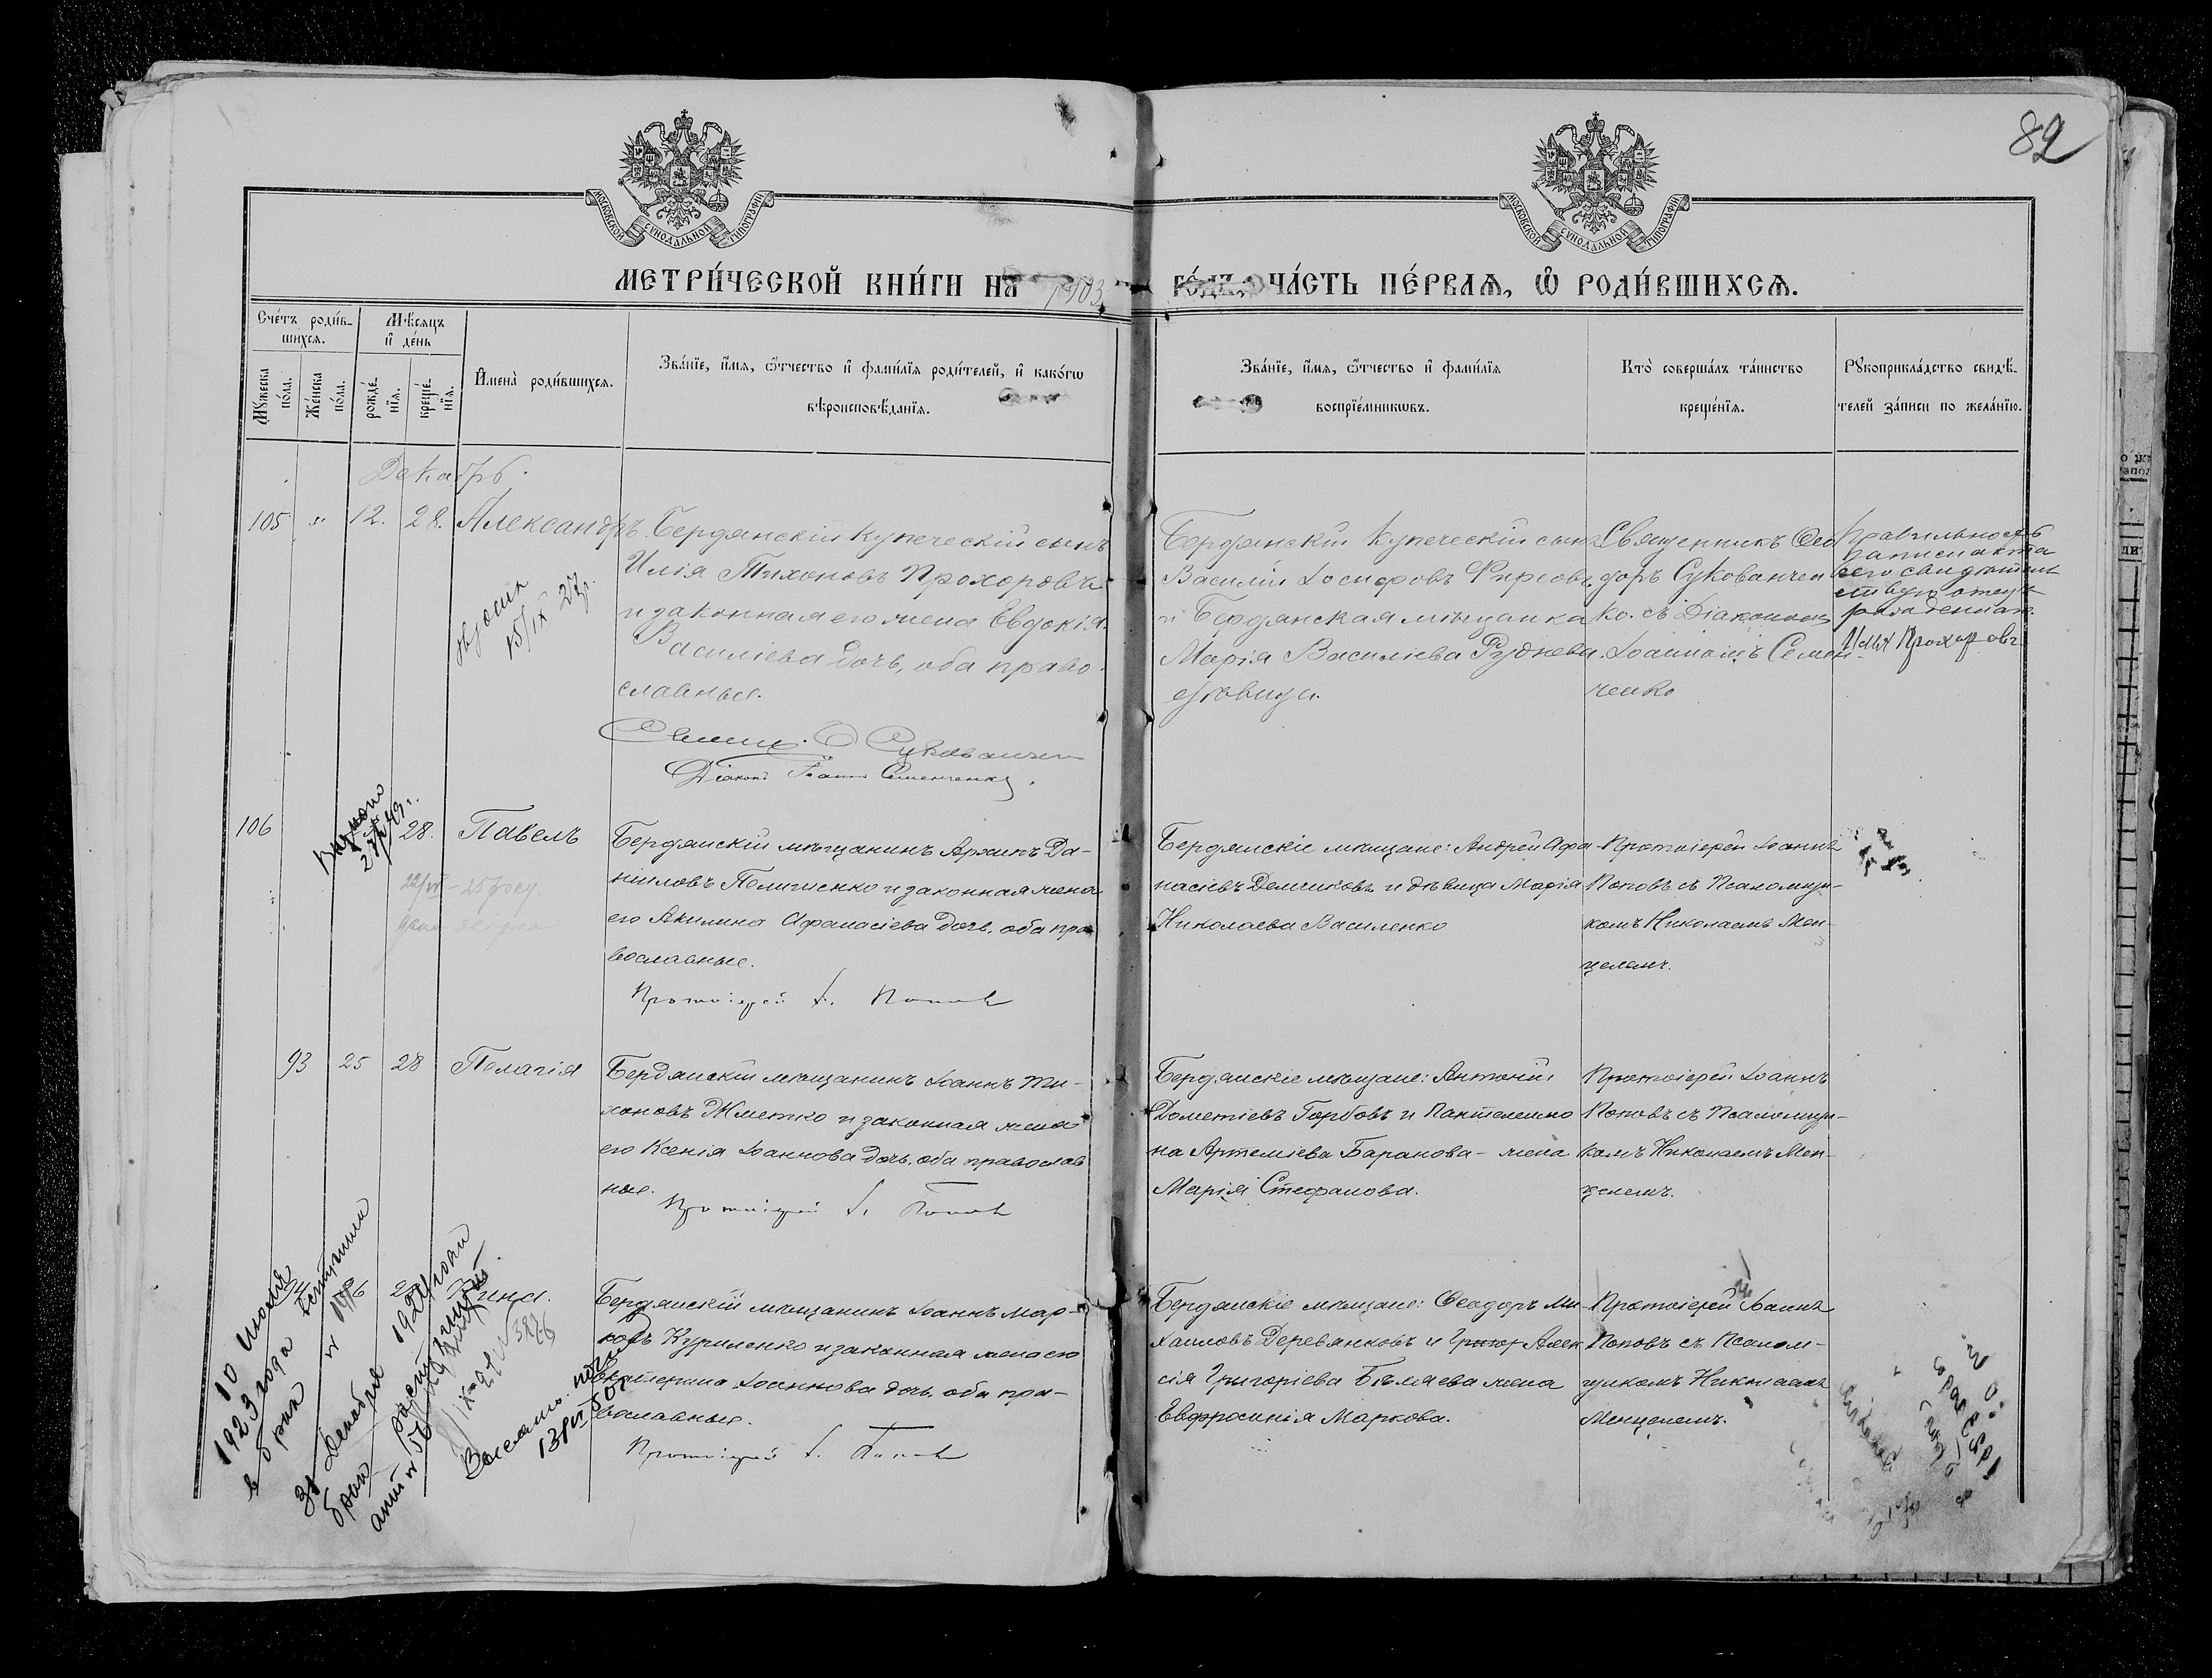 82
МОСКОВСКОЙ СУНОДАЛЬНОЙ ТИПОГРАФІИ
МОСКОВСКОЙ СУНОДАЛЬНОЙ ТИПОГРАФІИ
МЕТРИ́ЧЕСКОЙ КНИ́ГИ НА 1903 ГО́ДЪ, ЧА́СТЬ ПЕ́РВАЯ, Ѡ РОДИ́ВШИХСЯ.
Сче́тъ роди́в-
шихся.
Мѣ́сяцъ
и де́нь
Му́жеска
по́ла.
Же́нска
по́ла.
рожде́-
нїя.
креще́-
нїя.
Имена̀ роди́вшихся.
Зва́нїе, и́мя, ѻ҆́тчество и фами́лїя роди́телей, и како́гѡ
вѣроисповѣ́данїя.
Зва́нїе, и́мя, ѻ҆́тчество и фами́лїя
воспрїе́мникѡвъ.
Кто̀ соверша́лъ та́инство
креще́нїя.
Рꙋкоприкла́дство свидѣ́-
телей за́писи по жела́нїю.
Декабрь.
105 " 12. 28. Александръ.
Бердянскій купеческій сынъ
Илія Тихоновъ Прохоровъ
и законная его жена Евдокія
Василіева дочь, оба право-
славные.
Священ. Ѳ Сукованчен
Діаконъ Іоаннъ Семенченко.
Бердянскій купеческій сынъ
Василій Іосифовъ Фирсовъ
и Бердянская мѣщанка
Марія Василіева Руднева.
Священникъ Ѳео
доръ Сукованчен
ко. съ Діакономъ
Іоанномъ Семен-
ченко
Правильность
записи акта
сего свидѣтель
ствую отецъ
Илья Прохоровъ
15/IX 27г.
106 28. Павелъ
Бердянскій мѣщанинъ Архипъ Да-
ніиловъ Полищенко и законная жена
его Акилина Афанасіева дочь, оба пра
вославные.
Протоіерей І. Поповъ
Бердянскіе мѣщане: Андрей Афа-
насіевъ Демчиковъ и дѣвица Марія
Николаева Василенко
Протоіерей Іоаннъ
Поповъ съ Псаломщи-
комъ Николаемъ Мен-
целемъ.
93 25 28 Пелагія
Бердянскій мѣщанинъ Іоаннъ Ти-
хоновъ Жметко и законная жена
его Ксенія Іоаннова дочь, оба православ
ные.
Протоіерей І. Поповъ
Бердянскіе мѣщане: Антоній
Дометіевъ Горбовъ и Пантелеимо
на Артеміева Баранова - жена
Марія Стефанова.
Протоіерей Іоаннъ
Поповъ съ Псаломщи-
комъ Николаемъ Мен-
целемъ.
Зина.
Бердянскій мѣщанинъ Іоаннъ Мар-
ковъ Куриленко и законная жена его
Екатерина Іоаннова дочь, оба пра-
вославные.
Протоіерей І. Поповъ
Бердянскіе мѣщане: Ѳеодоръ Ми-
хаиловъ Деревянковъ и Григор Алек
сія Григоріева Бѣляева жена
Евфросинія Маркова.
Протоіерей Іоаннъ
Поповъ съ Псалом-
щикомъ Николаемъ
Менцелемъ.
10 июля
1923 года вступила
в брак
31 Декабря 1924 года
брак расторгнут